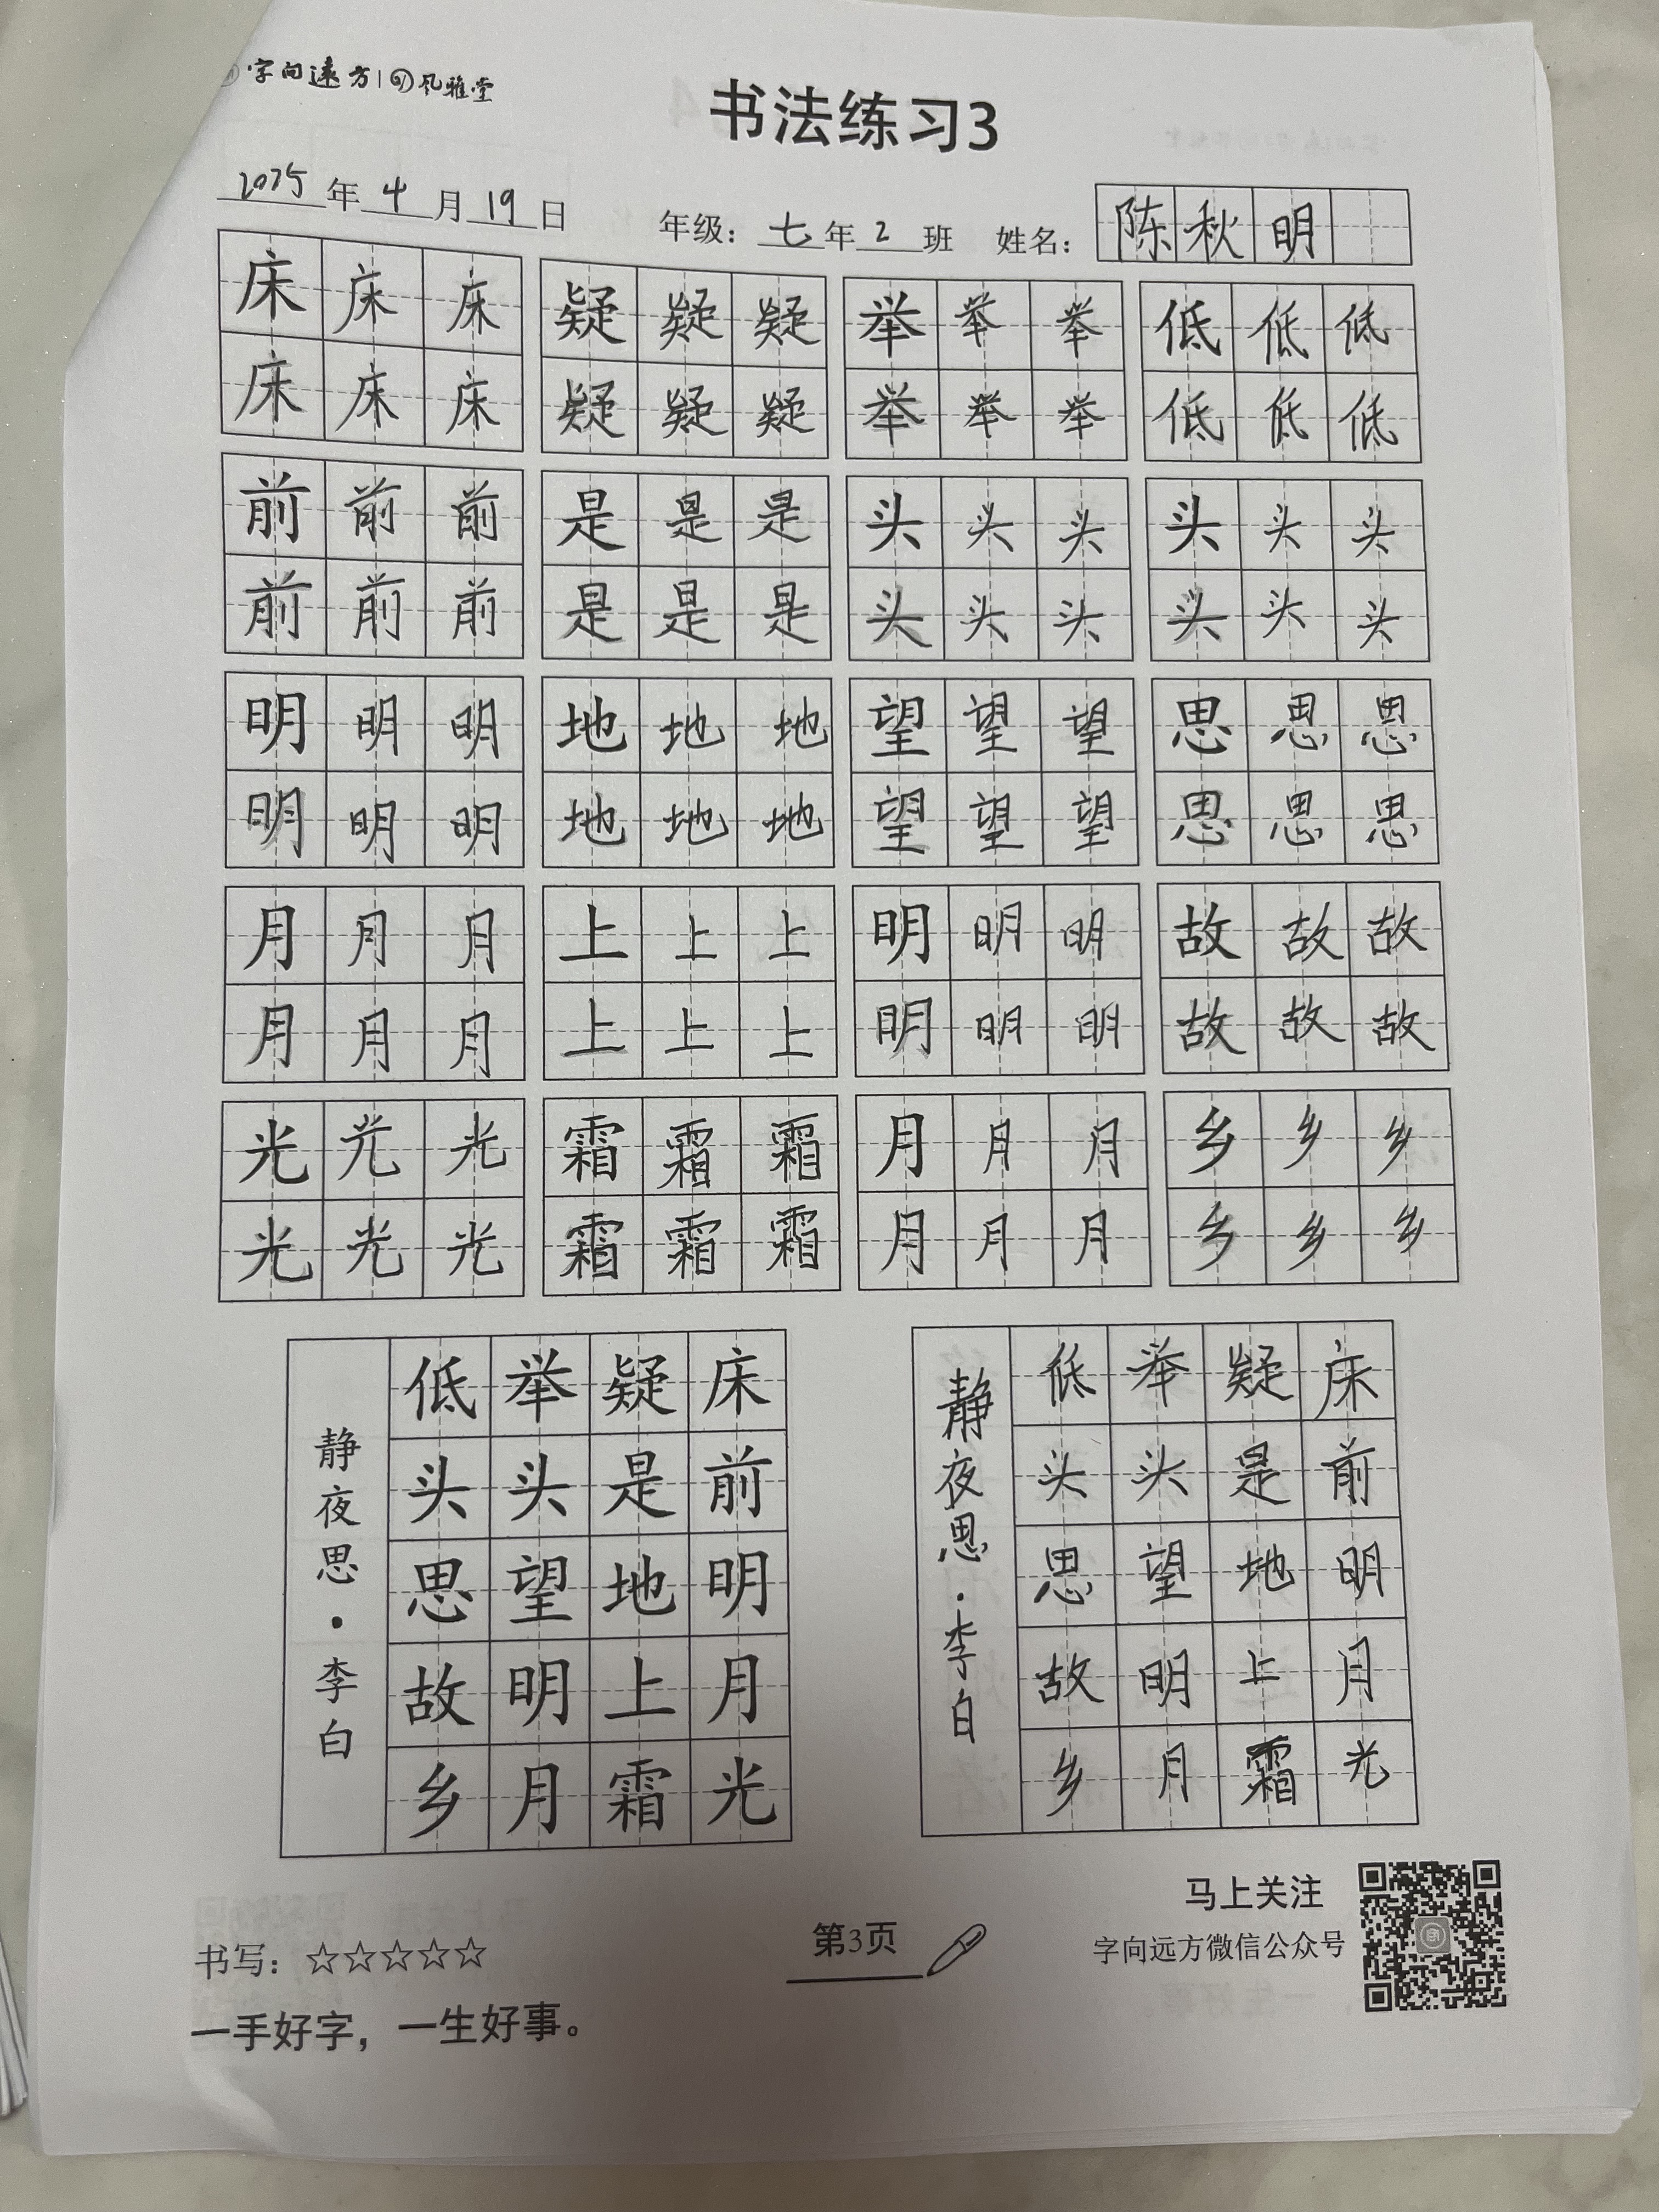 字向远方 | 风雅堂
书法练习3
2025年4月19日 年级：七年2班 姓名：陈秋明
床床床 疑疑疑 举举举 低低低
床床床 疑疑疑 举举举 低低低
前前前 是是是 头头头 头头头
前前前 是是是 头头头 头头头
明明明 地地地 望望望 思思思
明明明 地地地 望望望 思思思
月月月 上上上 明明明 故故故
月月月 上上上 明明明 故故故
光光光 霜霜霜 月月月 乡乡乡
光光光 霜霜霜 月月月 乡乡乡
床前明月光
疑是地上霜
举头望明月
低头思故乡
静夜思·李白
床前明月光
疑是地上霜
举头望明月
低头思故乡
静夜思·李白
书写：☆☆☆☆☆
一手好字，一生好事。
第3页
马上关注
字向远方微信公众号